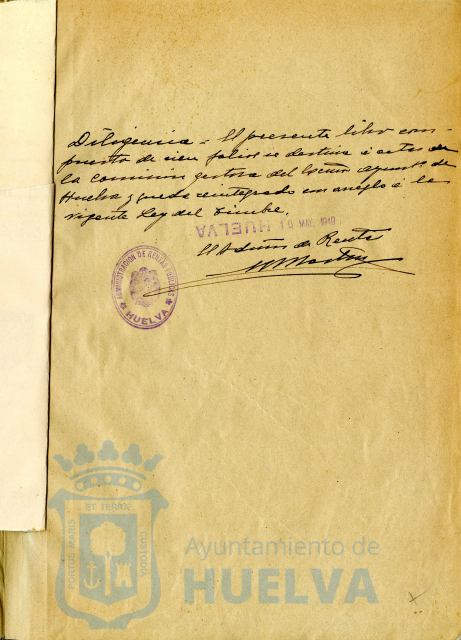 Diligencia = El presente libro com-
puesto de cien folios se destina á actas de
la comisión gestora del Excmo Ayunto de
Huelva y queda reintegrado con arreglo á la
vigente Ley del Timbre.
HUELVA 10 MAY. 1940
El Admor de Rentas
ADMINISTRACION DE RENTAS PUBLICAS
HUELVA
ET TERRAE
PORTUS MARIS
CUSTODIA
Ayuntamiento de
HUELVA